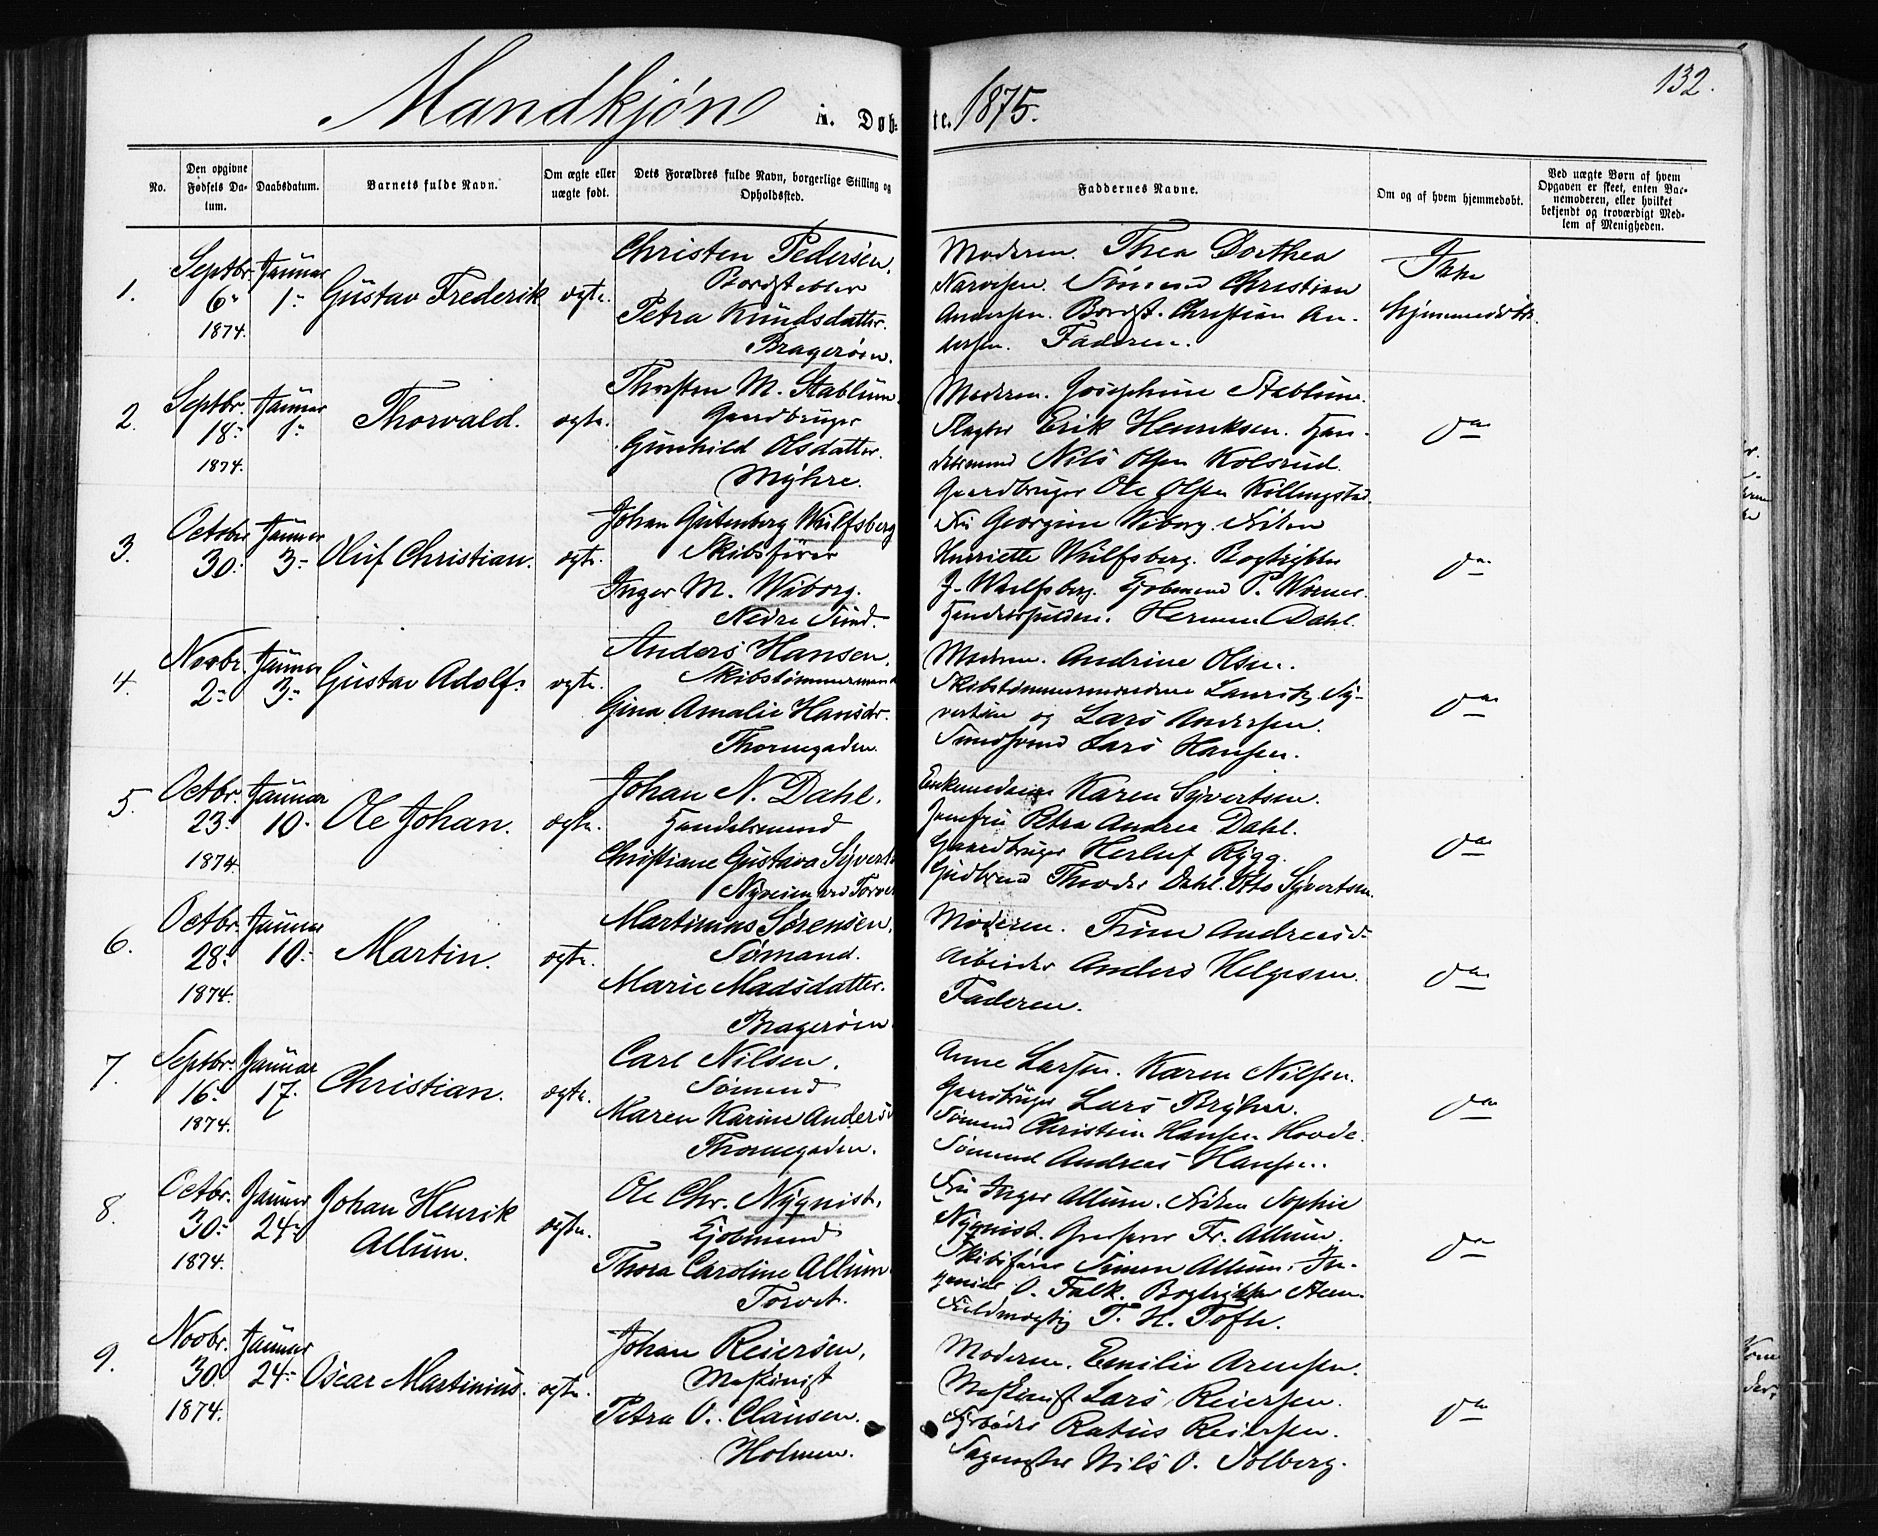 Mandkjøn A. Døb-
te. 1875.
132.
No.
Den opgivne
Fødsels Da-
tum.
Daabsdatum.
Barnets fulde Navn.
Om ægte eller
uægte født.
Dets Forældres fulde Navn, borgerlige Stilling og
Opholdssted.
Faddernes Navne.
Om og af hvem hjemmedøbt.
Ved uægte Børn af hvem
Opgaven er skeet, enten Bar-
nemoderen, eller hvilket
bekjendt og troværdigt Med-
lem af Menigheden.
1.
Septbr.
6
1874.
Januar
1
Gustav Frederik
ægte.
Christen Pedersen.
Petra Knudsdatter.
Bragerøen.
Moderen. Thea Dorthea
Narvesen. Sømand Christian
Andersen. Christian An-
dersen. Faderen.
Ikke
hjemmedøbt.
2.
Septbr.
18
1874.
Januar
1
Thorvald.
ægte.
Thorsten M. Stablum
Gaardbruger
Gunhild Olsdatter.
Myhre.
Moderen. Josephine Stablum.
Slagter Erik Henriksen. Han-
delsmand Nils Olsen Kolsrud.
Gaardbruger Ole Olsen Killingstad.
do
3.
Octobr
30
Januar
3
Oluf Christian.
ægte.
Johan Gutenberg Wulfsberg
Skibsfører
Inger M. Wiborg.
Nedre Sund.
Fru Georgine Wiborg. Frøken
Henriette Wulfsberg. Bogtrykker
J. Wulfsberg. Kjøbmand P. Wörner.
Herman Dahl.
do
4.
Novbr.
2
Januar
3
Gustav Adolf.
ægte.
Anders Hansen.
Skibstømmermand
Gina Amalie Hansdr.
Thornegaden.
Moderen. Andrine Olsen.
Skibstømmermændene Lauritz Sy-
vertsen og Lars Andersen.
Lars Hansen.
do
5.
Octbr.
23
1874.
Januar
10
Ole Johan.
ægte.
Johan N. Dahl.
Handelsmand
Christiane Gustava Syverts
Nyveien ved Torvet
Karen Syvertsen.
Jomfru Petra Andrea Dahl.
Gaardbruger Herluf Rygg.
Theodor Dahl. Otto Syvertsen.
do
6.
Octbr.
28
1874.
Januar
10
Martin.
ægte.
Martinius Sørensen,
Sømand.
Marie Madsdatter.
Bragerøen.
Moderen. Trine Andreasd.
Arbeider Anders Helgesen.
Faderen.
do
7.
Septbr.
16
1874.
Januar
17.
Christian.
ægte.
Carl Nilsen.
Sømand
Maren Karine Anders
Thornegaden.
Anne Larsen. Karen Nilsen.
Gaardbruger Lars Bryhn.
Sømand Christian Hansen Hovde.
Sømand Andreas Hansen.
do
8.
Octbr.
30
1874.
Januar
24
Johan Henrik
Allum.
ægte.
Ole Chr. Nyqvist,
Kjøbmand
Thora Caroline Allum.
Torvet.
Fru Inger Allum. Frøken Sophie
Nyqvist. Fr. Allum.
Skibsfører Simon Allum. In-
geniør O. Falk. Bogtrykker
Fuldmægtig T. H. Tofte.
do
9.
Novbr.
30
1874.
Januar
24
Oscar Martinius.
ægte.
Johan Reiersen,
Maskinist
Petra O. Clausen.
Holmen.
Moderen. Emilie Arnesen.
Maskinist Lars Reiersen.
Ratus Reiersen.
Sagmester Nils O. Solberg.
do